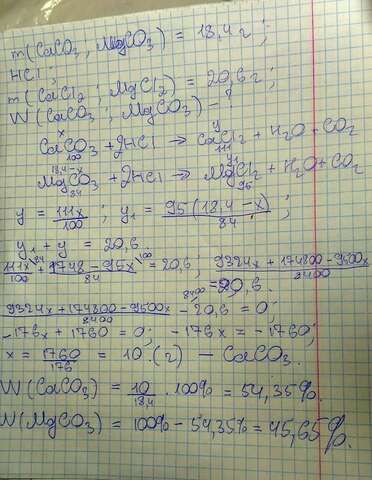 m(CaCO3; MgCO3) = 18,4 г;
HCl;
m(CaCl2; MgCl2) = 20,6 г;
W(CaCO3; MgCO3) - ?
x y
CaCO3 + 2HCl → CaCl2 + H2O + CO2
100 111
18,4-x y1
MgCO3 + 2HCl → MgCl2 + H2O + CO2
84 95
y = 111x/100 ; y1 = 95(18,4-x)/84 ;
y1 + y = 20,6.
111x^84/100 + 1748-95x^100/84 = 20,6, 9324x+174800-9500x/8400
= 20,6.
9324x+174800-9500x/8400 - 20,6 = 0;
-176x + 1760 = 0; -176x = -1760;
x = 1760/176 = 10 (г) - CaCO3.
W(CaCO3) = 10/18,4 · 100% = 54,35%.
W(MgCO3) = 100% - 54,35% = 45,65%.